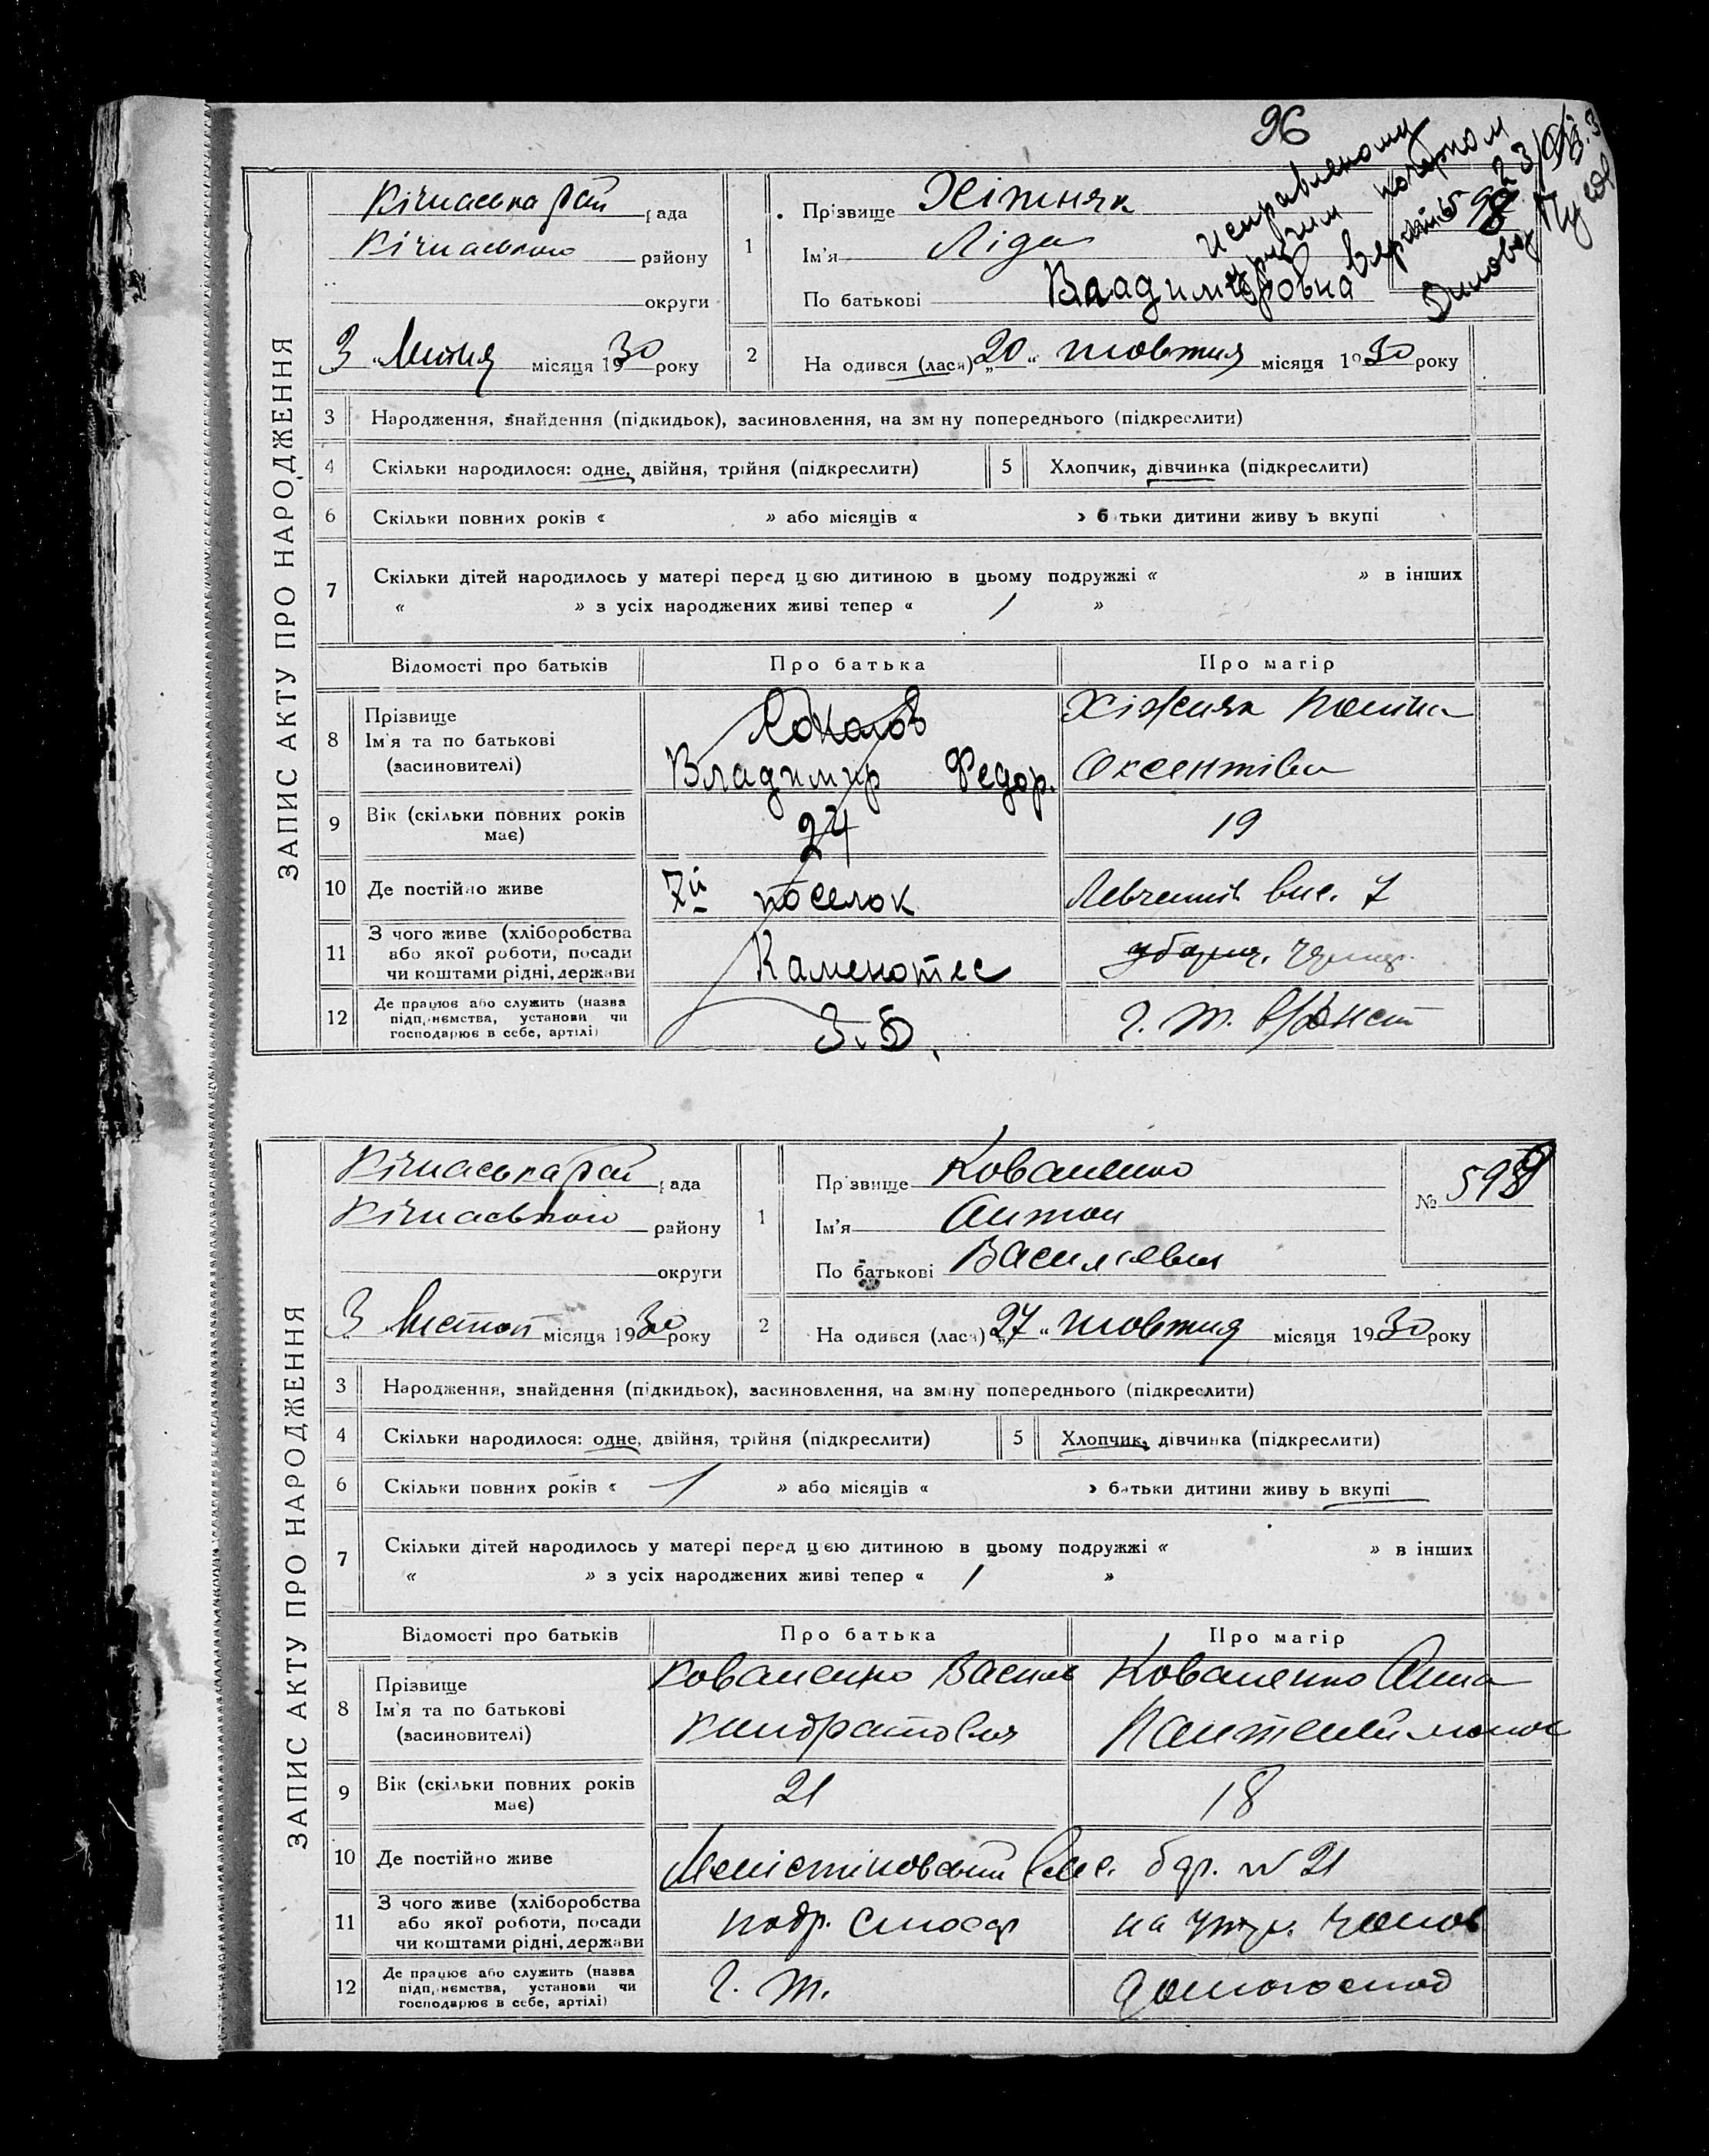 96
исправленому
другим почерком
верить
ЗАПИС АКТУ ПРО НАРОДЖЕННЯ
Кічкаська рай рада
Кічкаського району
округи
3 місяця 1930 року
1
Прізвище Хіжняк
Ім'я Ліда
По батькові Владимировна
2 На одився (лася) „20" жовтня місяця 1930 року
3 Народження, знайдення (підкидьок), засиновлення, на зм ну попереднього (підкреслити)
4 Скільки народилося: одне, двійня, трійня (підкреслити) 5 Хлопчик, дівчинка (підкреслити)
6 Скільки повних років « » або місяців « » б тьки дитини живу ь вкупі
7 Скільки дітей народилось у матері перед цією дитиною в цьому подружжі « » в інших
« » з усіх народжених живі тепер « 1 »
Відомості про батьків Про батька Про матір
8 Прізвище Ім'я та по батькові (засиновителі) Соколов Владимир Федор. Хіжняк Поліна Оксентіївн
9 Вік (скільки повних років має) 24 19
10 Де постійно живе 7й поселок вис. 7
11 З чого живе (хліборобства або якої роботи, посади чи коштами рідні, держави Каменотес
12 Де працює або служить (назва підп. иємства, установи чи господарює в себе, артілі) З.Б. Г. Т.
ЗАПИС АКТУ ПРО НАРОДЖЕННЯ
Кічкаська рай рада
Кічкаського району
округи
3 Листоп місяця 1930 року
1
Прізвище Коваленко
Ім'я Антон
По батькові Васильович
№ 599
2 На одився (лася) „27" жовтня місяця 1930 року
3 Народження, знайдення (підкидьок), засиновлення, на зміну попереднього (підкреслити)
4 Скільки народилося: одне, двійня, трійня (підкреслити) 5 Хлопчик, дівчинка (підкреслити)
6 Скільки повних років « 1 » або місяців « » батьки дитини живу ь вкупі
7 Скільки дітей народилось у матері перед цією дитиною в цьому подружжі « » в інших
« » з усіх народжених живі тепер « 1 »
Відомості про батьків Про батька Про матір
8 Прізвище Ім'я та по батькові (засиновителі) Коваленко Василь Кондратович Коваленко Анна
9 Вік (скільки повних років має) 21 18
10 Де постійно живе вис. бар. № 21
11 З чого живе (хліборобства або якої роботи, посади чи коштами рідні, держави на утр. чолов
12 Де працює або служить (назва підп. иємства, установи чи господарює в себе, артілі) Г. Т. домогоспод